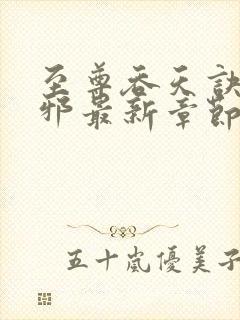 至尊吞天訣
邪最新章節
五十嵐優美子